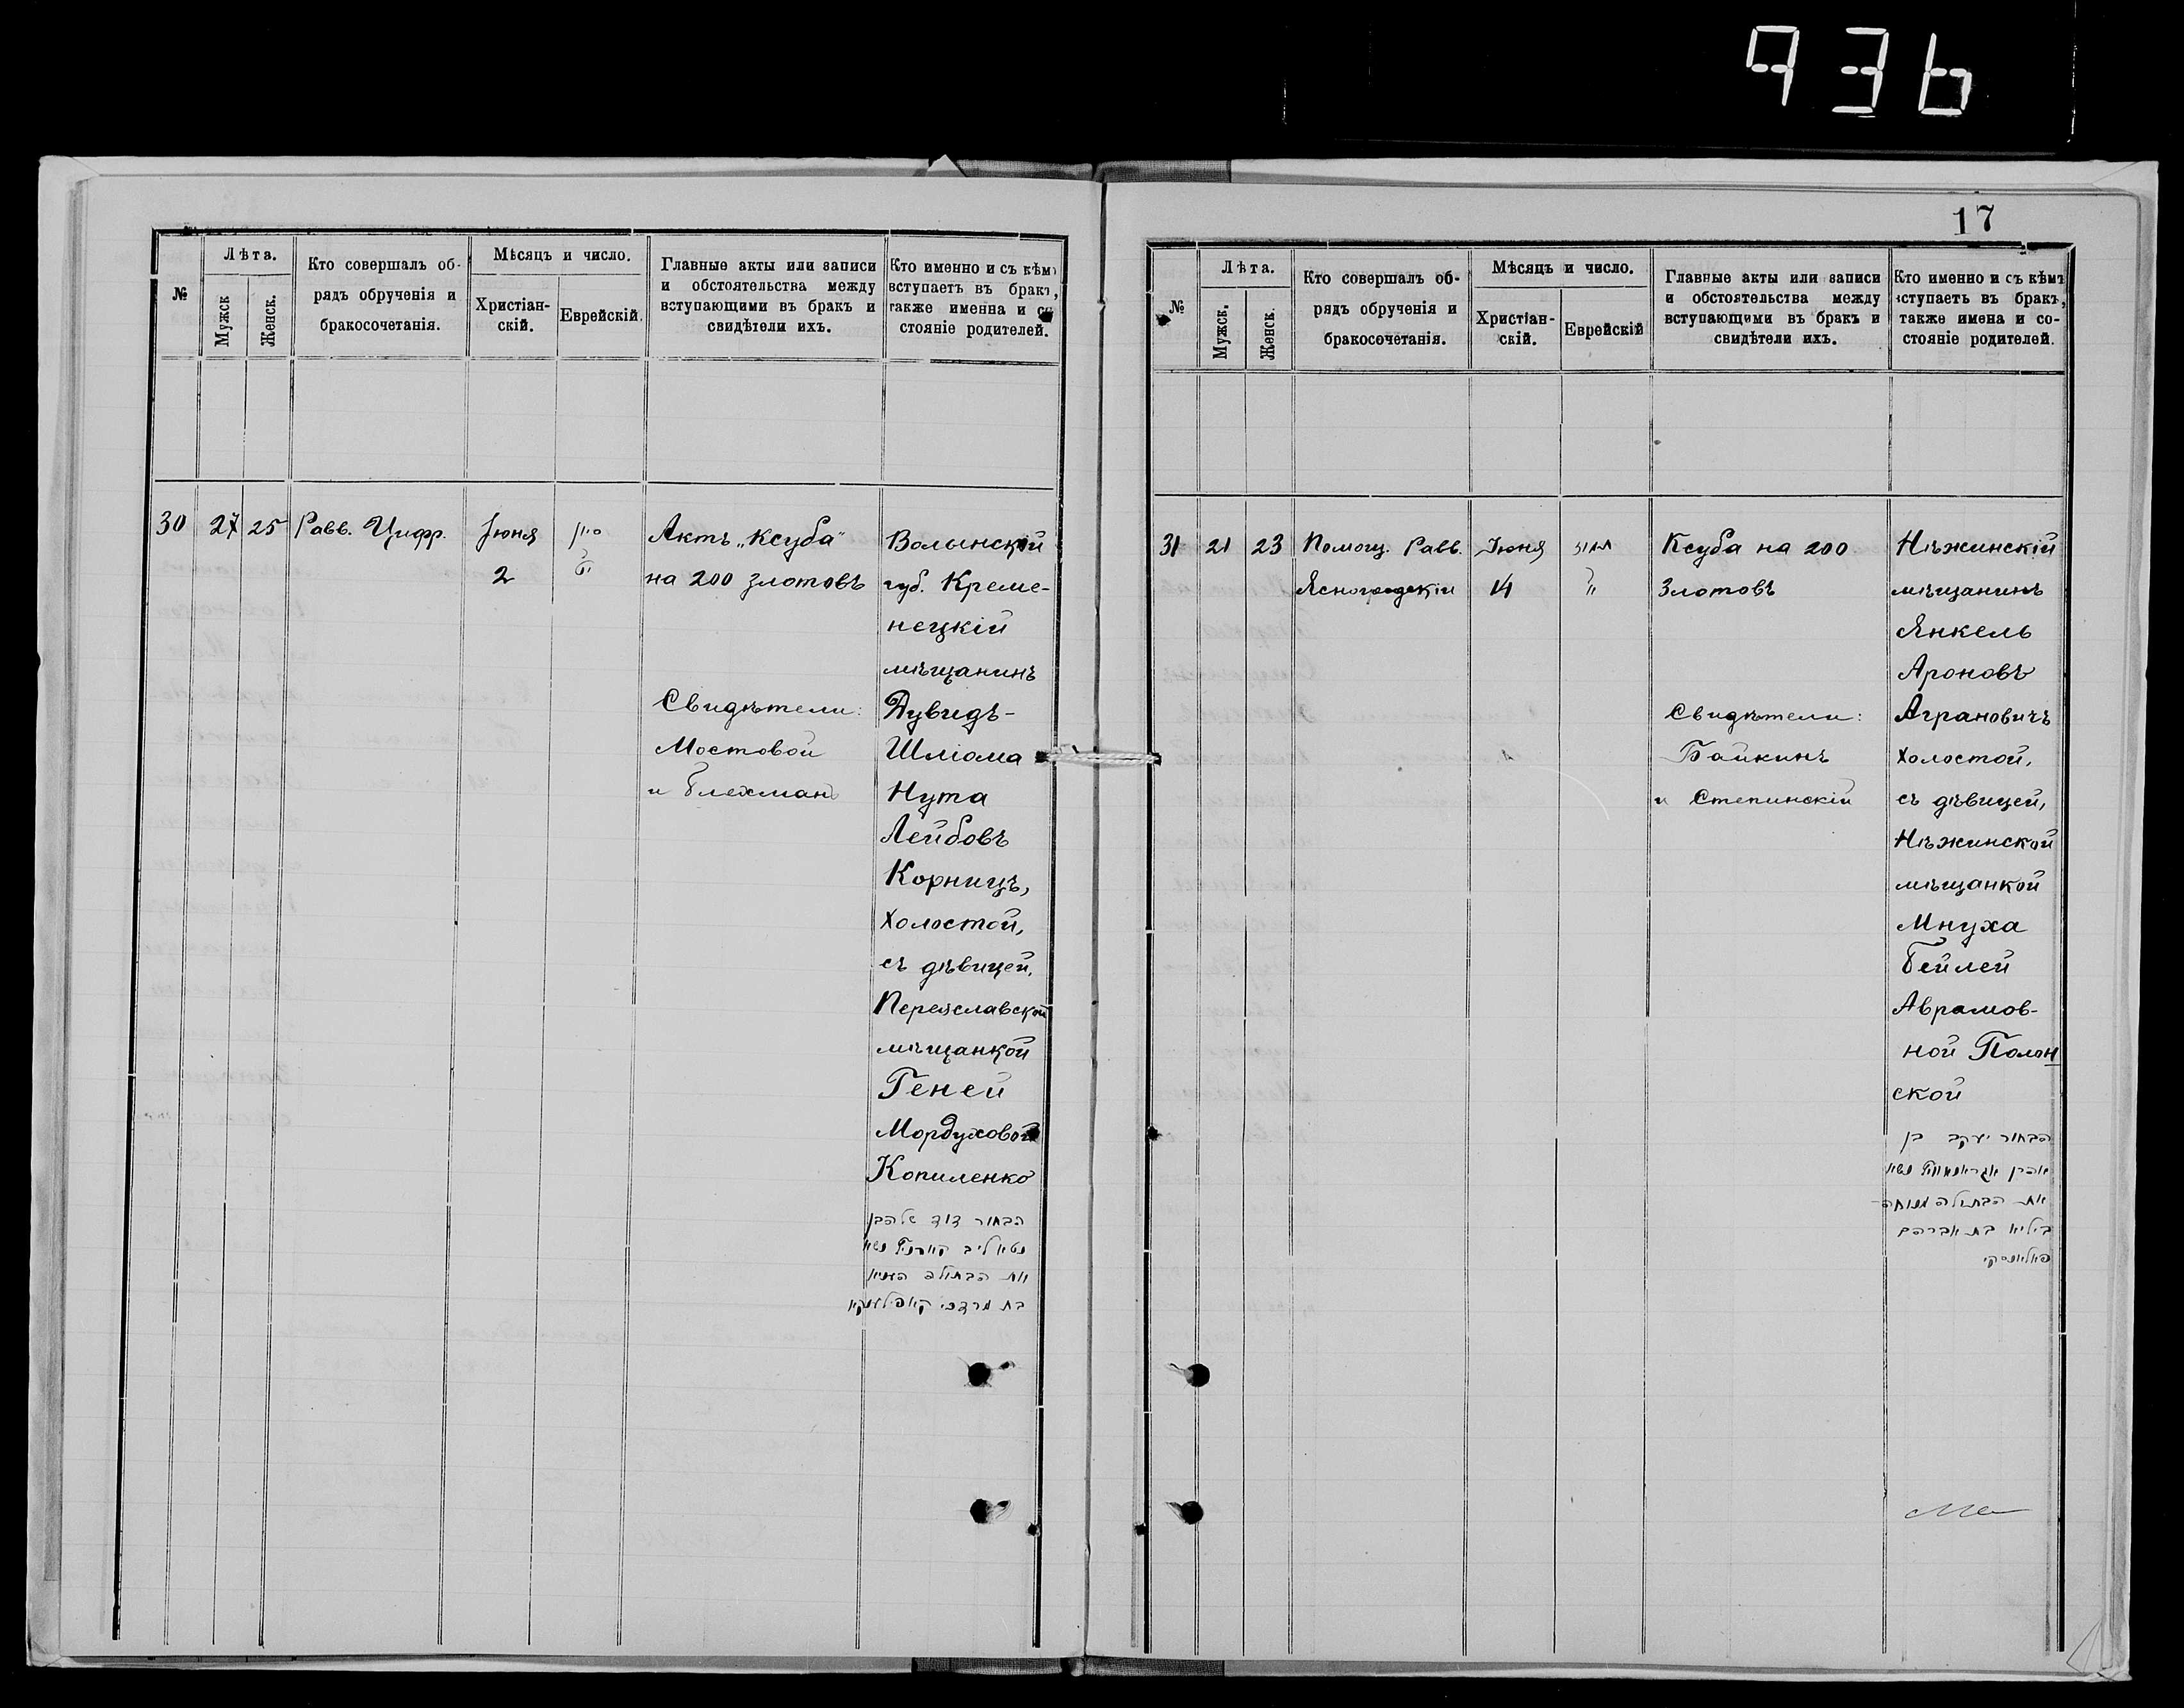 936
№
Лѣта.
Мужск
Женск.
Кто совершалъ об-
рядъ обрученія и
бракосочетанія.
Мѣсяцъ и число.
Христіан-
скій.
Еврейскій.
Главные акты или записи
и обстоятельства между
вступающими въ бракъ и
свидѣтели ихъ.
Кто именно и съ кѣмъ
вступаетъ въ бракъ,
также именна и со
стояніе родителей.
30
27
25
Равв. Цифр.
Іюня
2
סיון
Актъ „Ксуба"
на 200 злотовъ
Свидѣтели:
Мостовой
и Блехманъ
Волынской
губ. Креме-
нецкій
мѣщанинъ
Дувидъ-
Шліома
Нута
Лейбовъ
Корницъ,
холостой,
съ дѣвицей,
Переяславской
мѣщанкой
Геней
Мордуховой
Копиленко
הבחור דוד שלמה
ליב קארניץ נשא
את הבתולה העניא
בת מרדכי קאפילענקא
17
№
Лѣта.
Мужск.
Женск.
Кто совершалъ об-
рядъ обрученія и
бракосочетанія.
Мѣсяцъ и число.
Христіан-
скій.
Еврейскій
Главные акты или записи
и обстоятельства между
вступающими въ бракъ и
свидѣтели ихъ.
Кто именно и съ кѣмъ
вступаетъ въ бракъ,
также имена и со-
стояніе родителей.
31
21
23
Помощ. Равв.
Ясногродскій
Іюня
14
תמוז
Ксуба на 200
Злотовъ
Свидѣтели:
Байкинъ
и Степинскій
Нѣжинскій
мѣщанинъ
Янкель
Ароновъ
Аграновичъ
холостой,
съ дѣвицей,
Нѣжинской
мѣщанкой
Мнуха
Бейлей
Аврамов-
ной Полон
ской
הבחור יעקב בן
אהרן אגראנאוויץ נשא
את הבתולה מנוחה
ביילא בת אברהם
פאלאנסקי